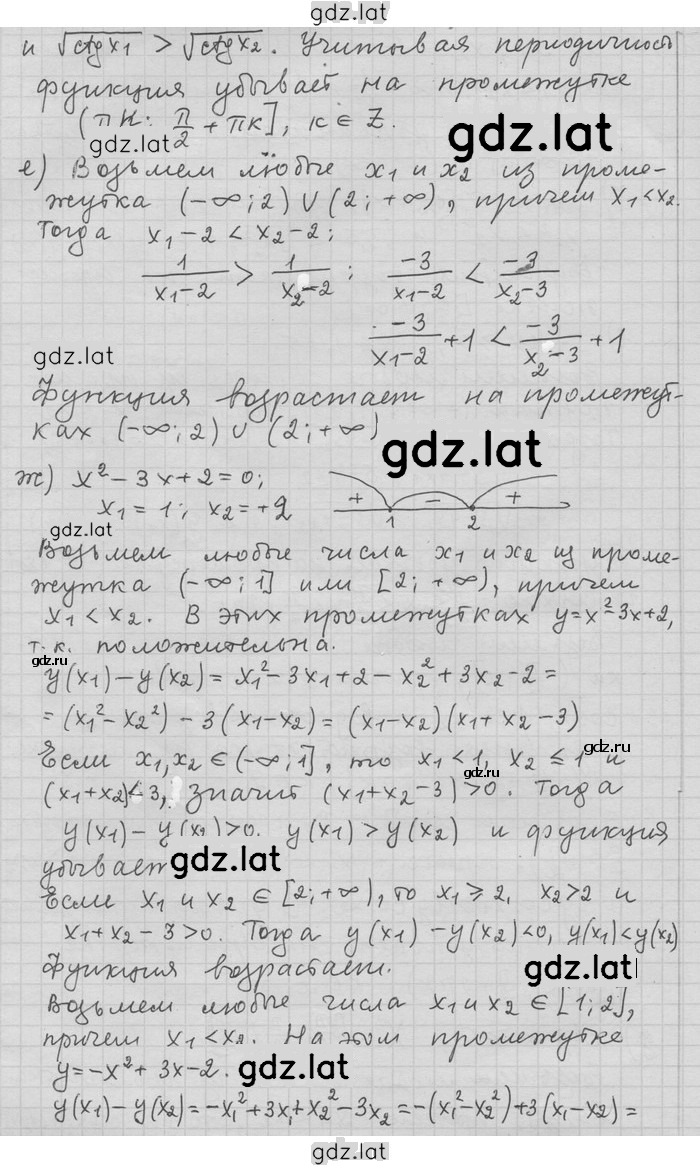 gdz.lat
и √ctg x₁ > √ctg x₂. Учитывая периодичность
функция убывает на промежутке
(πк; π/2 + πк], к ∈ Z.
gdz.lat
gdz.lat
е) Возьмем любые x₁ и x₂ из проме-
жутка (-∞; 2) ∪ (2; +∞), причем x₁ < x₂.
Тогда x₁-2 < x₂-2;
1/(x₁-2) > 1/(x₂-2); -3/(x₁-2) < -3/(x₂-3)
-3/(x₁-2) + 1 < -3/(x₂-3) + 1
gdz.lat
Функция возрастает на промежут-
ках (-∞; 2) ∪ (2; +∞)
gdz.lat
ж) x² - 3x + 2 = 0;
x₁ = 1; x₂ = +2
+ − +
1 2
gdz.lat
Возьмем любые числа x₁ и x₂ из проме-
жутка (-∞; 1] или [2; +∞), причем
x₁ < x₂. В этих промежутках y = x² - 3x + 2,
т.к. положительна.
gdz.ru
y(x₁) - y(x₂) = x₁² - 3x₁ + 2 - x₂² + 3x₂ - 2 =
= (x₁² - x₂²) - 3(x₁ - x₂) = (x₁ - x₂)(x₁ + x₂ - 3)
Если x₁, x₂ ∈ (-∞; 1], то x₁ < 1, x₂ ≤ 1 и
gdz.ru
gdz.ru
(x₁ + x₂) < 3, значит (x₁ + x₂ - 3) > 0. Тогда
y(x₁) - y(x₂) > 0. y(x₁) > y(x₂) и функция
убывает
gdz.lat
Если x₁ и x₂ ∈ [2; +∞), то x₁ ≥ 2, x₂ > 2 и
x₁ + x₂ - 3 > 0. Тогда y(x₁) - y(x₂) < 0, y(x₁) < y(x₂)
Функция возрастает.
gdz.lat
Возьмем любые числа x₁ и x₂ ∈ [1; 2],
причем x₁ < x₂. На этом промежутке
y = -x² + 3x - 2.
gdz.lat
y(x₁) - y(x₂) = -x₁² + 3x₁ + x₂² - 3x₂ = -(x₁² - x₂²) + 3(x₁ - x₂) =
gdz.lat